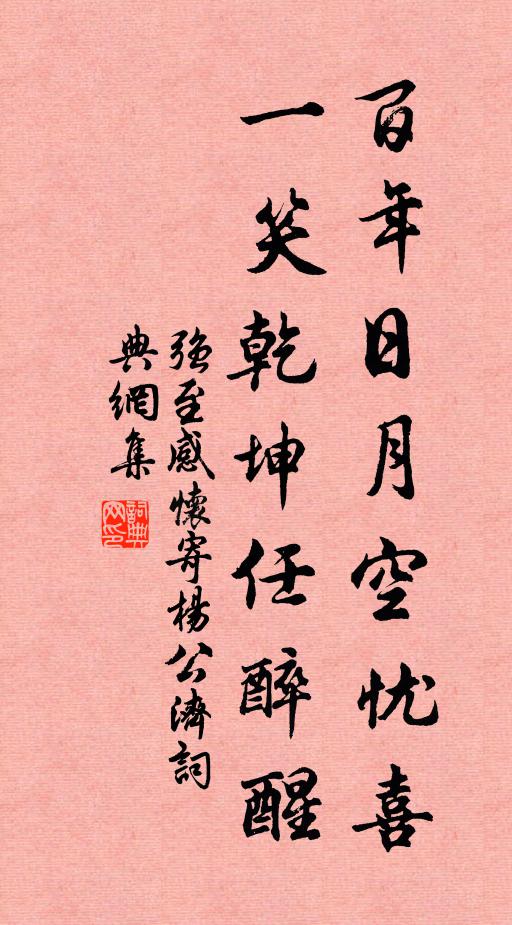 百年日月空忧喜
一笑乾坤任醉醒
强至感懷寄楊公濟詞
典網集
詞典网印